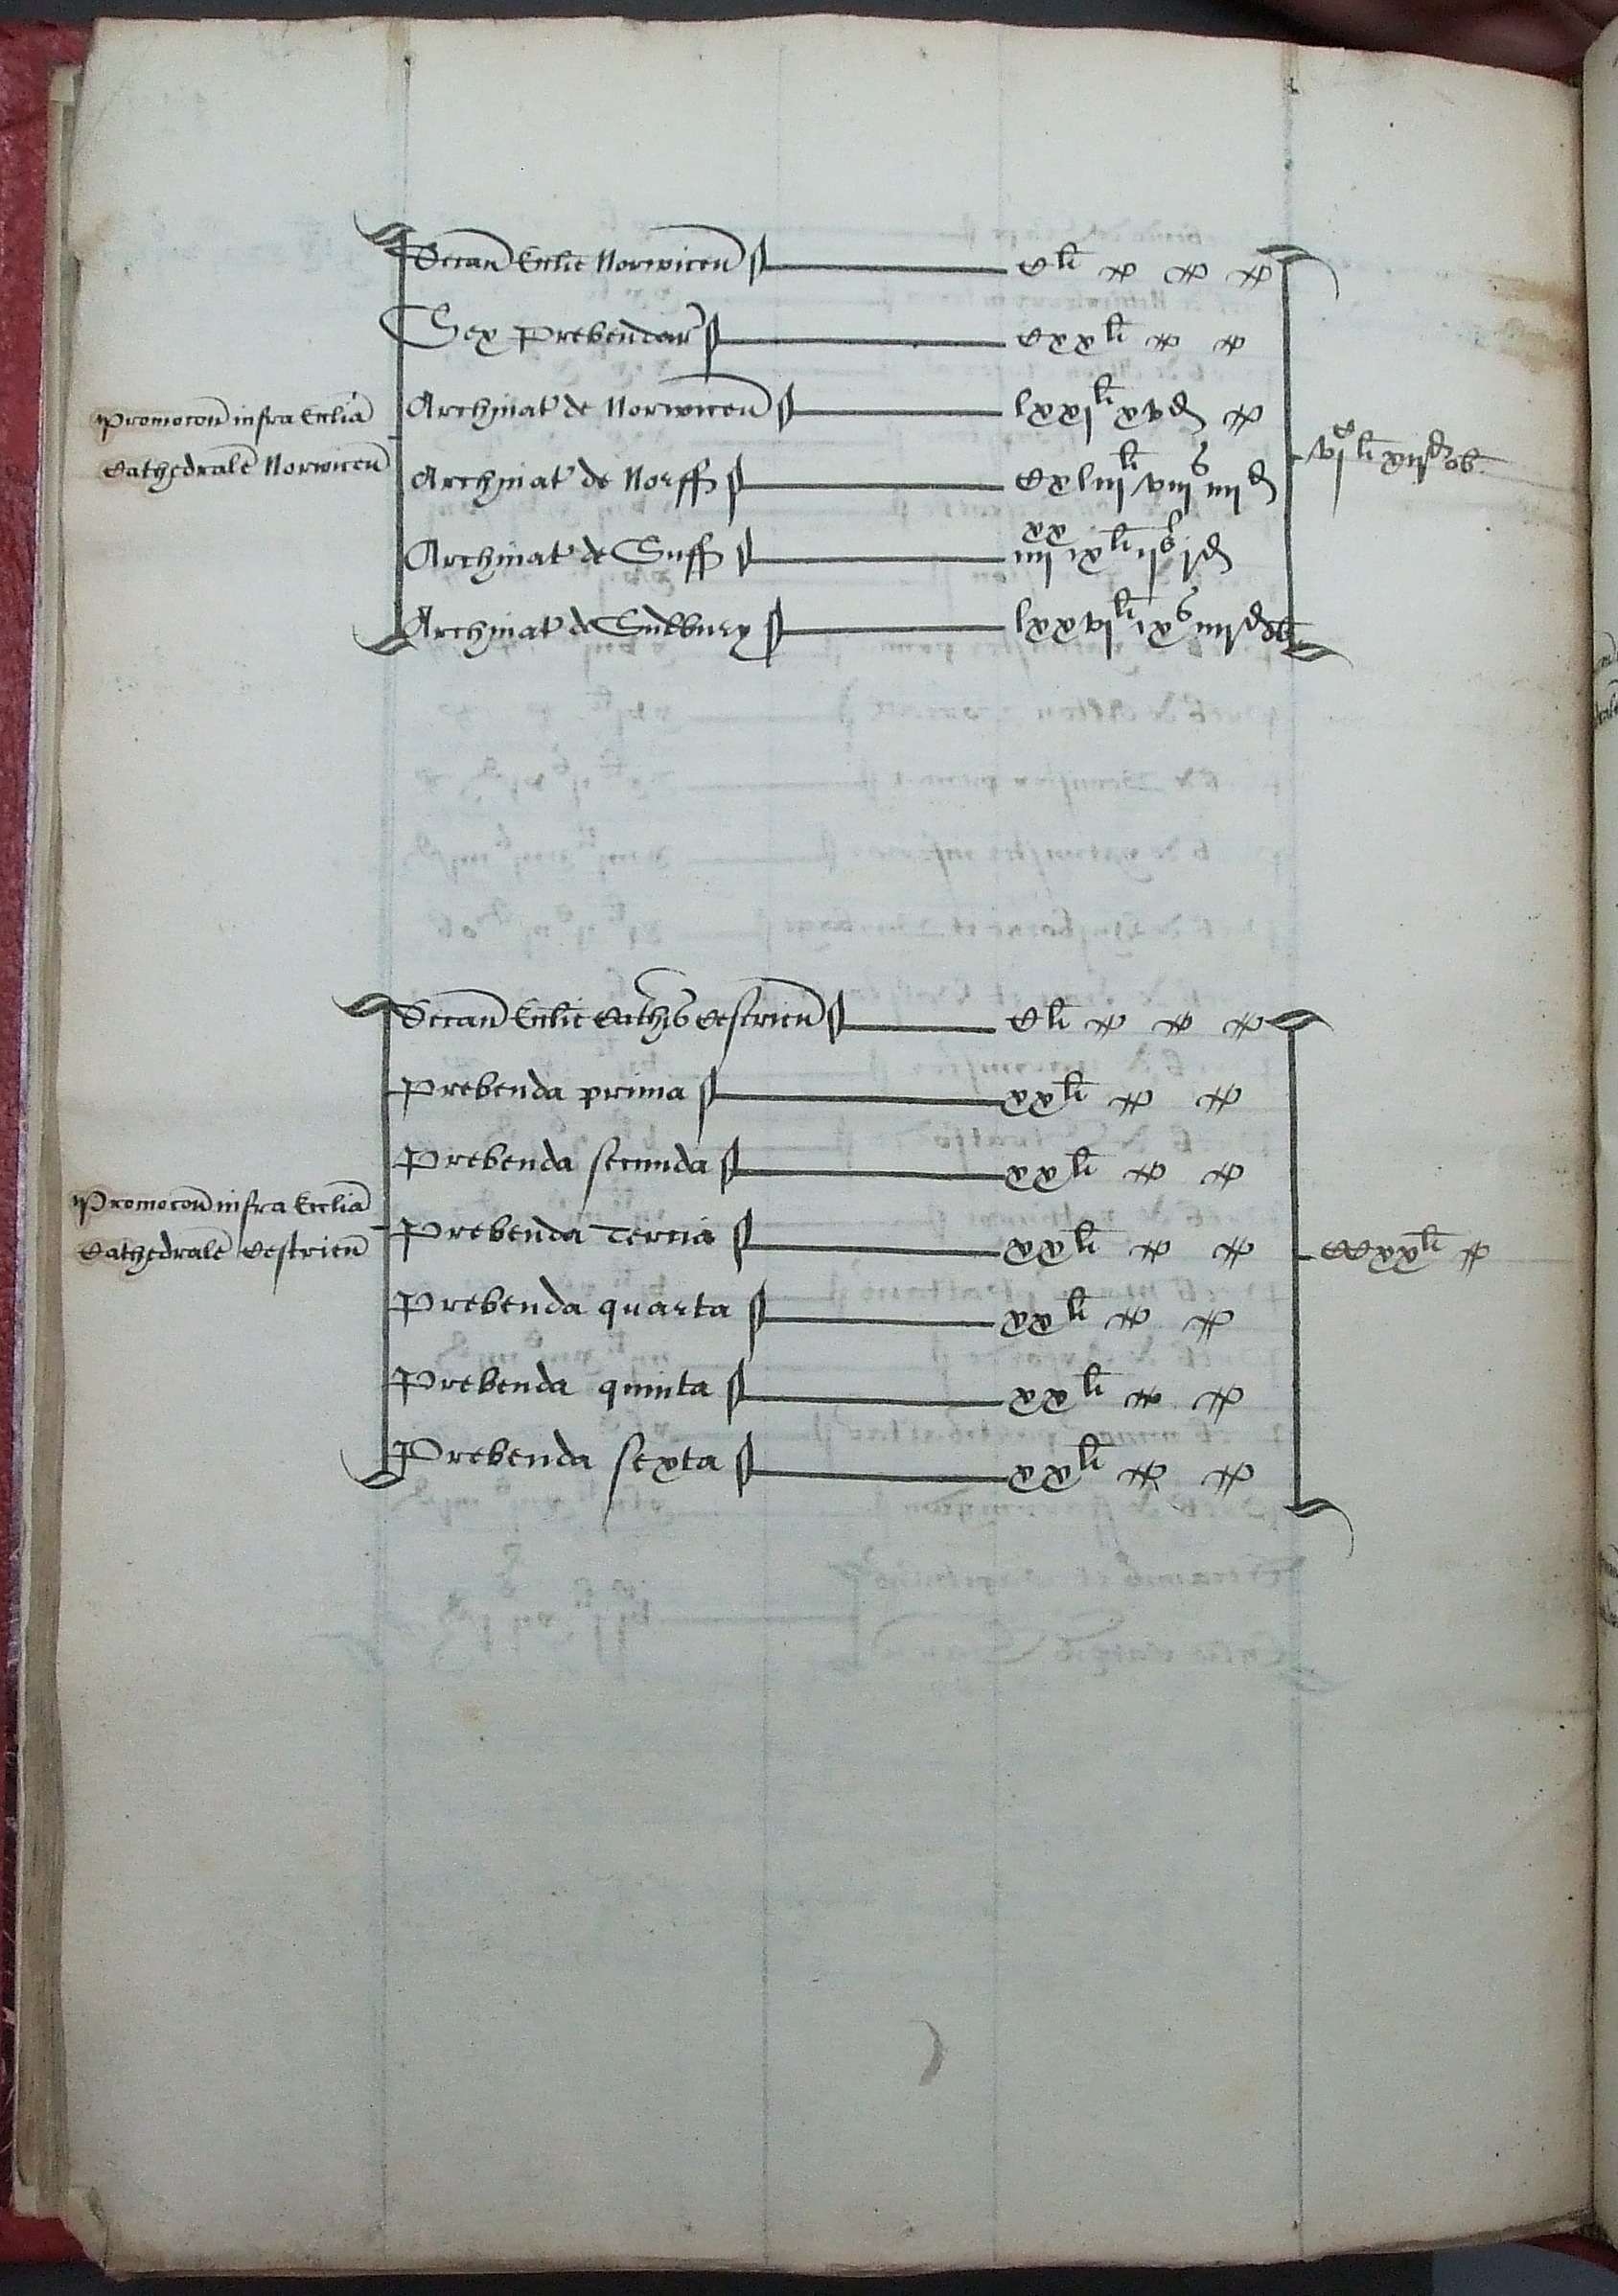 Decan Ecclie Norwicen
C li
Sex Prebendar
Cxx li
Promocon infra Eccliā
Cathedralē Norwicen
Archinat' de Norwicen
lxxj li xv d
Archinat' de Norff
Cxliij li viij s iiij d
Archinat' de Suff
Archinat' de Sudbury
Decan Ecclie Cathis Cestrien
C li
Prebenda prima
xx li
Prebenda secunda
xx li
Promocon infra Eccliā
Cathedralē Cestrien
Prebenda Tercia
xx li
CCxx li
Prebenda quarta
xx li
Prebenda quinta
xx li
Prebenda sexta
xx li